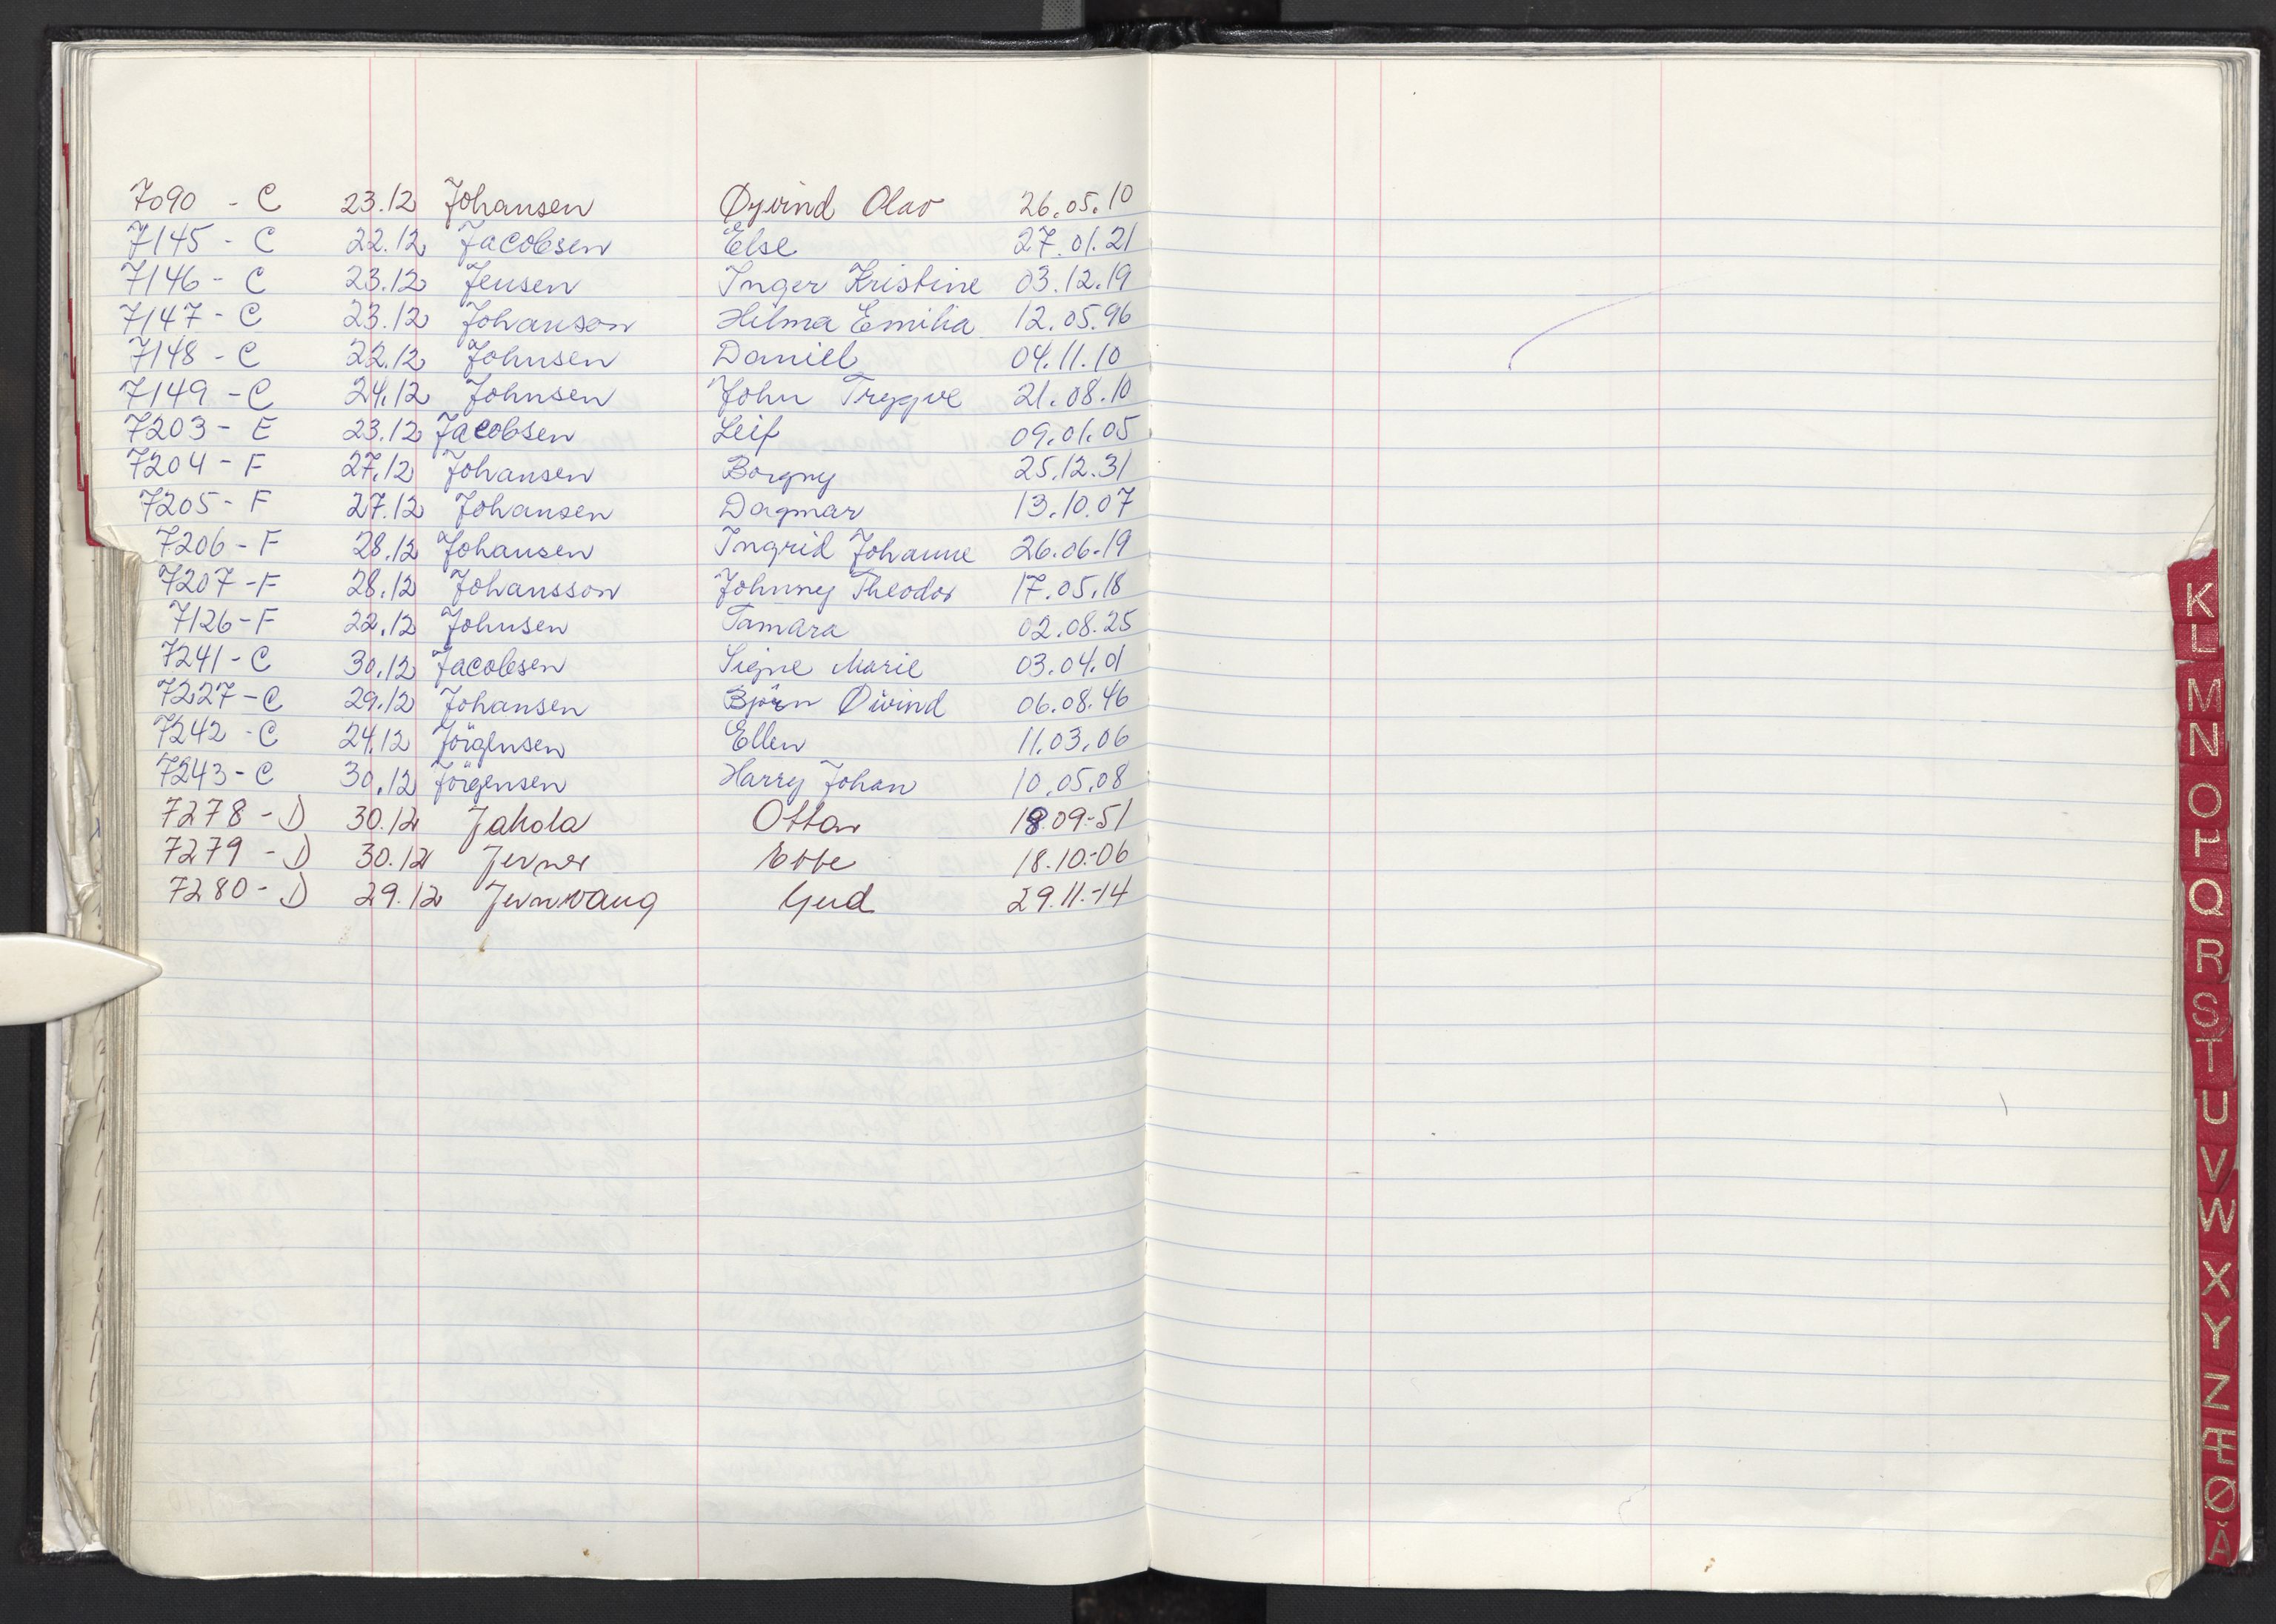 7090 - C 23.12 Johansen Øyvind Olav 26.05.10
7145 - C 22.12 Jacobsen Else 27.01.21
7146 - C 23.12 Jensen Inger Kristine 03.12.19
7147 - C 23.12 Johanson Hilma Emilia 12.05.96
7148 - C 22.12 Johnsen Daniel 04.11.10
7149 - C 24.12 Johnsen John Trygve 21.08.10
7203 - E 23.12 Jacobsen Leif 09.01.05
7204 - F 27.12 Johansen Borgny 25.12.31
7205 - F 27.12 Johansen Dagmar 13.10.07
7206 - F 28.12 Johansen Ingrid Johanne 26.06.19
7207 - F 28.12 Johansson Johnny Theodor 17.05.18
7126 - F 22.12 Johnsen Tamara 02.08.25
7241 - C 30.12 Jacobsen Signe Marie 03.04.01
7227 - C 29.12 Johansen Bjørn Øivind 06.08.46
7242 - C 24.12 Jörgensen Ellen 11.03.06
7243 - C 30.12 Jörgensen Harry Johan 10.05.08
7278 - D 30.12 Jahola Ottar 18.09-51
7279 - D 30.12 Jerner Ebbe 18.10-06
7280 - D 29.12 Jernvang Gerd 29.11-14
K
L
M
N
O
P
Q
R
S
T
U
V
W
X
Y
Z
Æ
Ø
Å